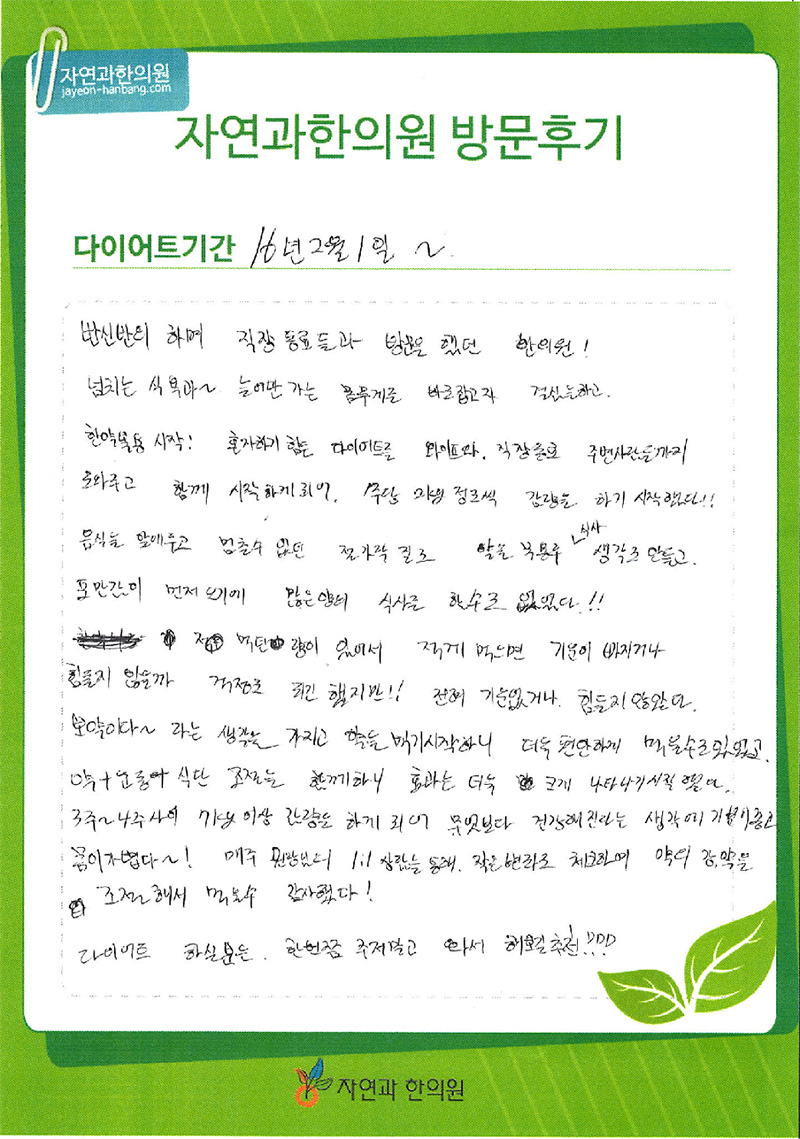 자연과한의원
jayeon-hanbang.com
자연과한의원 방문후기
다이어트기간 16년 2월 1일 ~
반신반의 하며 직장 동료들과 방문을 했던 한의원!
넘치는 식욕과~ 늘어만 가는 몸무게를 바로잡고자 결심을하고.
한약복용 시작! 혼자하기 힘든 다이어트를 와이프와, 직장동료 주변사람들까지
도와주고 함께 시작하게되어, 주당 정도씩 감량을 하기 시작했다!!
음식을 앞에두고 멈출수 없던 젓가락 질도 약을 복용후 식사 생각도 안들고.
포만감이 먼저 오기에 많은양의 식사를 할수도 없었다.!!
먹던 량이 있어서 적게 먹으면 기운이 빠지거나
힘들지 않을까 걱정도 되긴 했지만!! 전혀 기운없거나, 힘들지 않았다.
보약이다~ 라는 생각을 가지고 약을 먹기시작하니 더욱 편안하게 먹을수도있었고.
약+운동+식단 조절을 함께하니 효과는 더욱 크게 나타나기시작 했다.
3주~4주사이 7kg이상 감량을 하게 되어 무엇보다 건강해진다는 생각에 기분이좋고
몸이가볍다~! 매주 원장님과 1:1 상담을 통해, 작은변화도 체크하며 약의 강,약을
조절해서 먹을수 감사했다!
다이어트 하실분은. 한번쯤 주저말고 와서 해보길추천!!!!
자연과 한의원